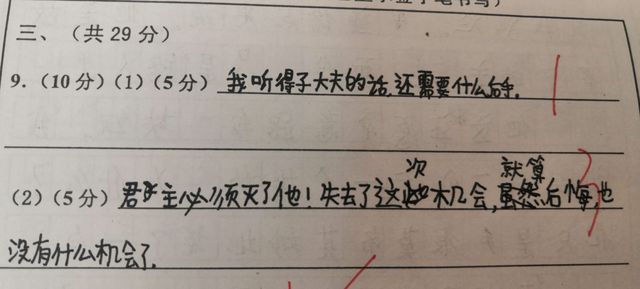 三、（共29分）
9.（10分）（1）（5分）我听得子大夫的话,还需要什么后手.
次 就算
（2）（5分）君主必须灭了他！失去了这机会,后悔,也
没有什么机会了.